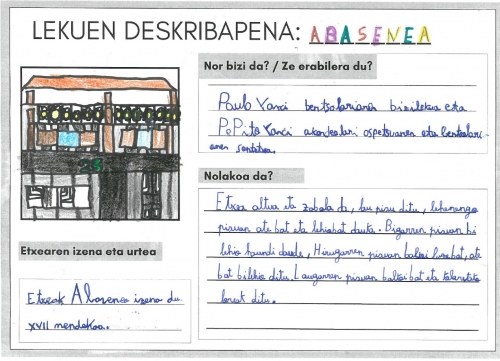 LEKUEN DESKRIBAPENA: ABASENEA
Nor bizi da? / Ze erabilera du?
Paulo Yanzi bertsolariaren bizilekua eta
PePito Yanzi akordeolari ospetsuaren eta bertsolari-
aren sortetxea.
Nolakoa da?
Etxea altua eta zabala da, lau pisu ditu, lehenengo
pisuan ate bat eta lehiabat dauka. Bigarren pisuan bi
leiho haundi daude, Hirugarren pisuan balkoi luze bat, ate
bat bileiho ditu. Laugarren pisuan balkoi bat eta
loreak ditu.
Etxearen izena eta urtea
Etxeak Abasenea izena du
XVII mendekoa.